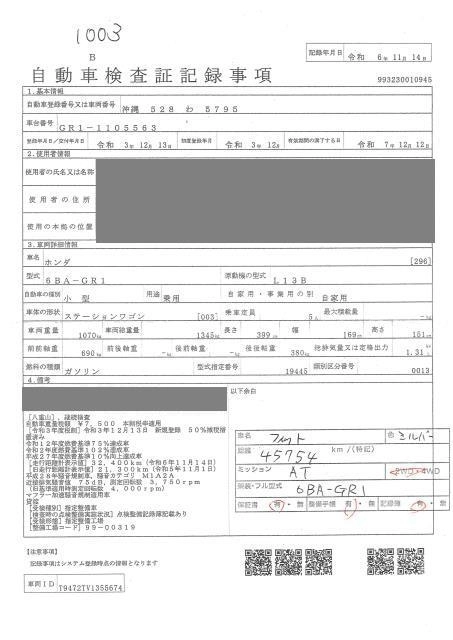 1003
B
記録年月日 令和 6年 11月 14日
自動車検査証記録事項
993230010945
1.基本情報
自動車登録番号又は車両番号 沖縄 528 わ 5795
車台番号 GR1-1105563
登録年月日/交付年月日 令和 3年 12月 13日 初度登録年月 令和 3年 12月 有効期間の満了する日 令和 7年 12月 12日
2.使用者情報
使用者の氏名又は名称
使用者の住所
使用の本拠の位置
3.車両詳細情報
車名 ホンダ [296]
型式 6BA-GR1 原動機の型式 L13B
自動車の種別 小型 用途 乗用 自家用・事業用の別 自家用
車体の形状 ステーションワゴン [003] 乗車定員 5人 最大積載量 -kg
車両重量 1070kg 車両総重量 1345kg 長さ 399cm 幅 169cm 高さ 151cm
前前軸重 690kg 前後軸重 -kg 後前軸重 -kg 後後軸重 380kg 総排気量又は定格出力 1.31
燃料の種類 ガソリン 型式指定番号 19445 類別区分番号 0013
4.備考
以下余白
[八重山],継続検査
自動車重量税額 ¥7,500 本則税率適用
[令和3年度税制]令和3年12月13日 新規登録 50%減税措置済み
令和12年度燃費基準75%達成車
令和2年度燃費基準102%達成車
平成27年度燃費基準10%向上達成車
[走行距離計表示値]32,400km(令和6年11月14日)
[旧走行距離計表示値]21,300km(令和5年11月1日)
平成28年騒音規制車、騒音カテゴリ M1A2A
近接排気騒音値 75dB,測定回転数 3,750rpm
(旧基準適用時測定回転数 4,000rpm)
マフラー加速騒音規制適用車
貸渡
[受検種別]指定整備車
[検査時の点検整備実施状況]点検整備記録簿記載あり
[受検形態]指定整備工場
[整備工場コード]99-00319
車名 フィット 色 シルバー
距離 45754 km/(特記)
ミッション AT 2WD・4WD
類別・フル型式 6BA-GR1
保証書 有・無 整備手帳 有・無 記録簿 有・無
【注意事項】
記録事項はシステム登録時点の情報となります
車両ID T9472TV1355674